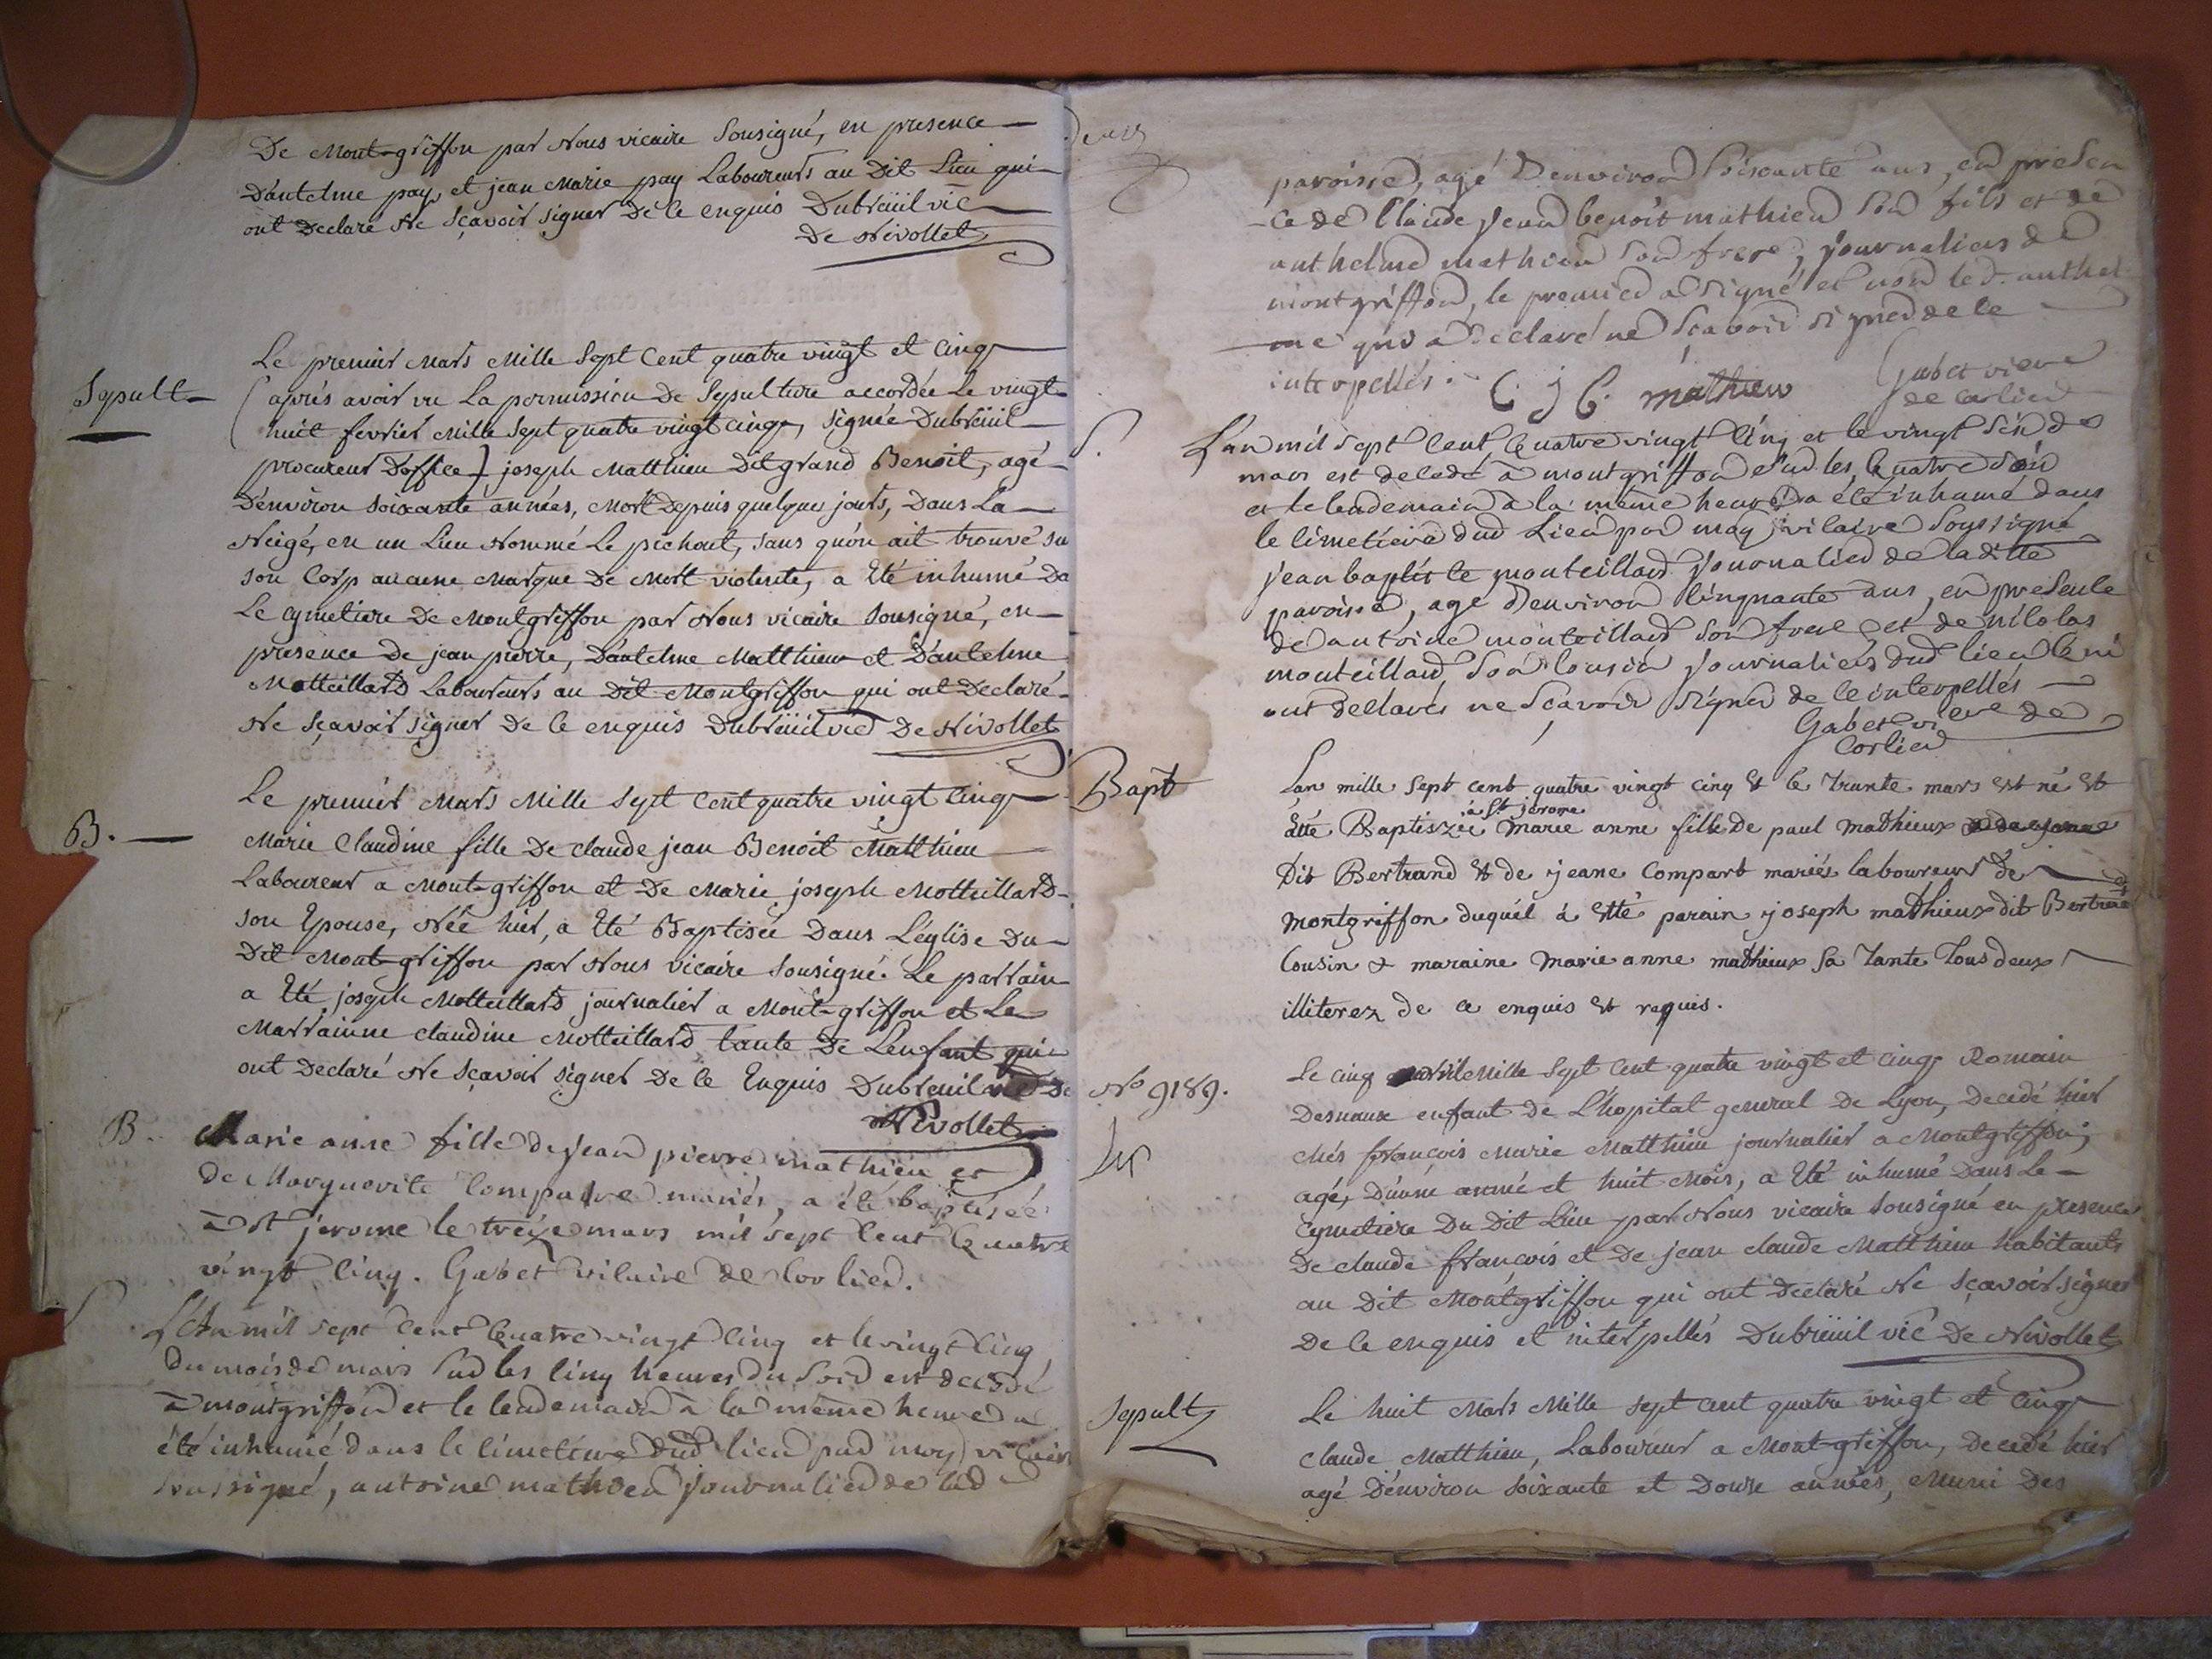 De Mont-griffon par Nous vicaire Sousigné, en presence
D'antelme pay, et jean Marie pay Laboureurs au Dit Lieu qui
ont Declaré Ne Sçavoir signer De ce enquis Dubreüil vic
De Nivollet
Le premier Mars Mille Sept Cent quatre vingt et Cinq
Sepult
( aprés avoir vu La permission De Sepulture accordée Le vingt
huit fevrier Mille Sept quatre vingt cinq, Signée Dubreüil
procureur D'office ) joseph Matthieu Dit grand Benoit, agé
D'environ soixante années, Mort Depuis quelques jours, Dans La
Neige, en un Lieu Nommé Le pichout, sans qu'on ait trouvé su
son Corp aucune Marque De Mort violente, a Eté inhumé Da
Le Cymetiere De Montgriffon par Nous vicaire Sousigné, en
presence De jean pierre, D'antelme Matthieu et D'antelme
Motteillard Laboureurs au Dit Montgriffon qui ont Declaré
Ne Sçavoir signer De Ce enquis Dubreüil vic De Nivollet
Le premier Mars Mille Sept Cent quatre vingt Cinq
B.
Marie Claudine fille De Claude jean Benoit Matthieu
Laboureur a Mont-griffon et De Marie joseph Motteillard
son Epouse, Née hier, a Eté Baptisée Dans L'eglise Du
Dit Mont-griffon par Nous vicaire Sousigné. Le parrain
a Eté joseph Motteillard journalier a Mont-griffon et La
Marrainne claudine Motteillard tante De L'enfant qui
ont Declaré Ne Sçavoir signer De Ce Enquis Dubreuil vic De
Nivollet
B. Marie anne fille de jean pierre mathieu et
de Marguerite Compare mariés, a été baptisée
à St jerome le treize mars mil sept Cent Quatre
vingt Cinq. Gabet vicaire de Corlier.
S. L'An mil sept Cent Quatre vingt Cinq et le vingt Cinq
du mois de mars Sur les Cinq heures du Soir est decedé
à montgriffon et le lendemain à la même heure a
été inhumé dans le Cimetiere dud lieu par moy vicaire
soussigné, antoine mathieu journalier de lad
paroisse, agé D'environ Soixante ans, en presen
-ce de Claude Jean benoit mathieu Son fils et de
anthelme mathieu Son frere, journaliers de
montgriffon, le premier a signé et non led. anthel
me qui a Declaré ne Scavoir signer de ce
interpellés. C J B. mathieu Gabet vicaire
de Corlier
S. L'an mil sept Cent Quatre vingt Cinq et le vingt Six de
mars est decedé à montgriffon Sur les Quatre
et le lendemain à la même heure a été inhumé dans
le Cimetiere dud Lieu par moy vicaire Soussigné
jean baptiste monteillard journalier de ladite
paroisse, agé d'environ Cinquante ans, en presence
de antoine monteillard Son frere et de nicolas
monteillard Son Cousin journaliers dud lieu Qui
ont declarés ne Scavoir Signer de Ce interpellés
Gabet vicaire de
Corlier
Bapt
Lan mille sept cent quatre vingt cinq & le trante mars est né &
à St jerome
Été Baptiszée marie anne fille de paul mathieux
Dit Bertrand & de jeane Compart mariés laboureur de
montgriffon duquél à Etté parain joseph mathieux dit Bertrand
Cousin & maraine marie anne mathieux sa tante tous deux
illiterez de ce enquis & requis.
No 9189.
Le Cinq avril Mille Sept Cent quatre vingt et Cinq Romain
Desnaux enfant de L'hopital general De Lyon, Decedé hier
chés françois Marie Matthieu journalier a Montgriffon,
agé, D'une année et huit Mois, a Eté inhumé Dans Le
Cymetiere Du Dit Lieu par Nous vicaire Sousigné en presence
De claude françois et De jean claude Matthieu habitants
au Dit Montgriffon qui ont Declaré Ne Sçavoir signer
De Ce enquis et interpellés Dubreüil vic De Nivollet
Sepult
Le huit Mars Mille Sept Cent quatre vingt et Cinq
Claude Matthieu, Laboureur a Mont-griffon, Decedé hier
agé D'environ Soixante et Douze années, Muni Des